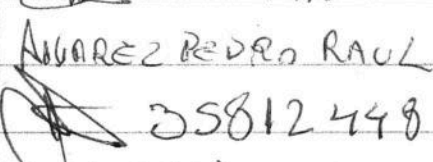 ALVAREZ PEDRO RAUL
35812448